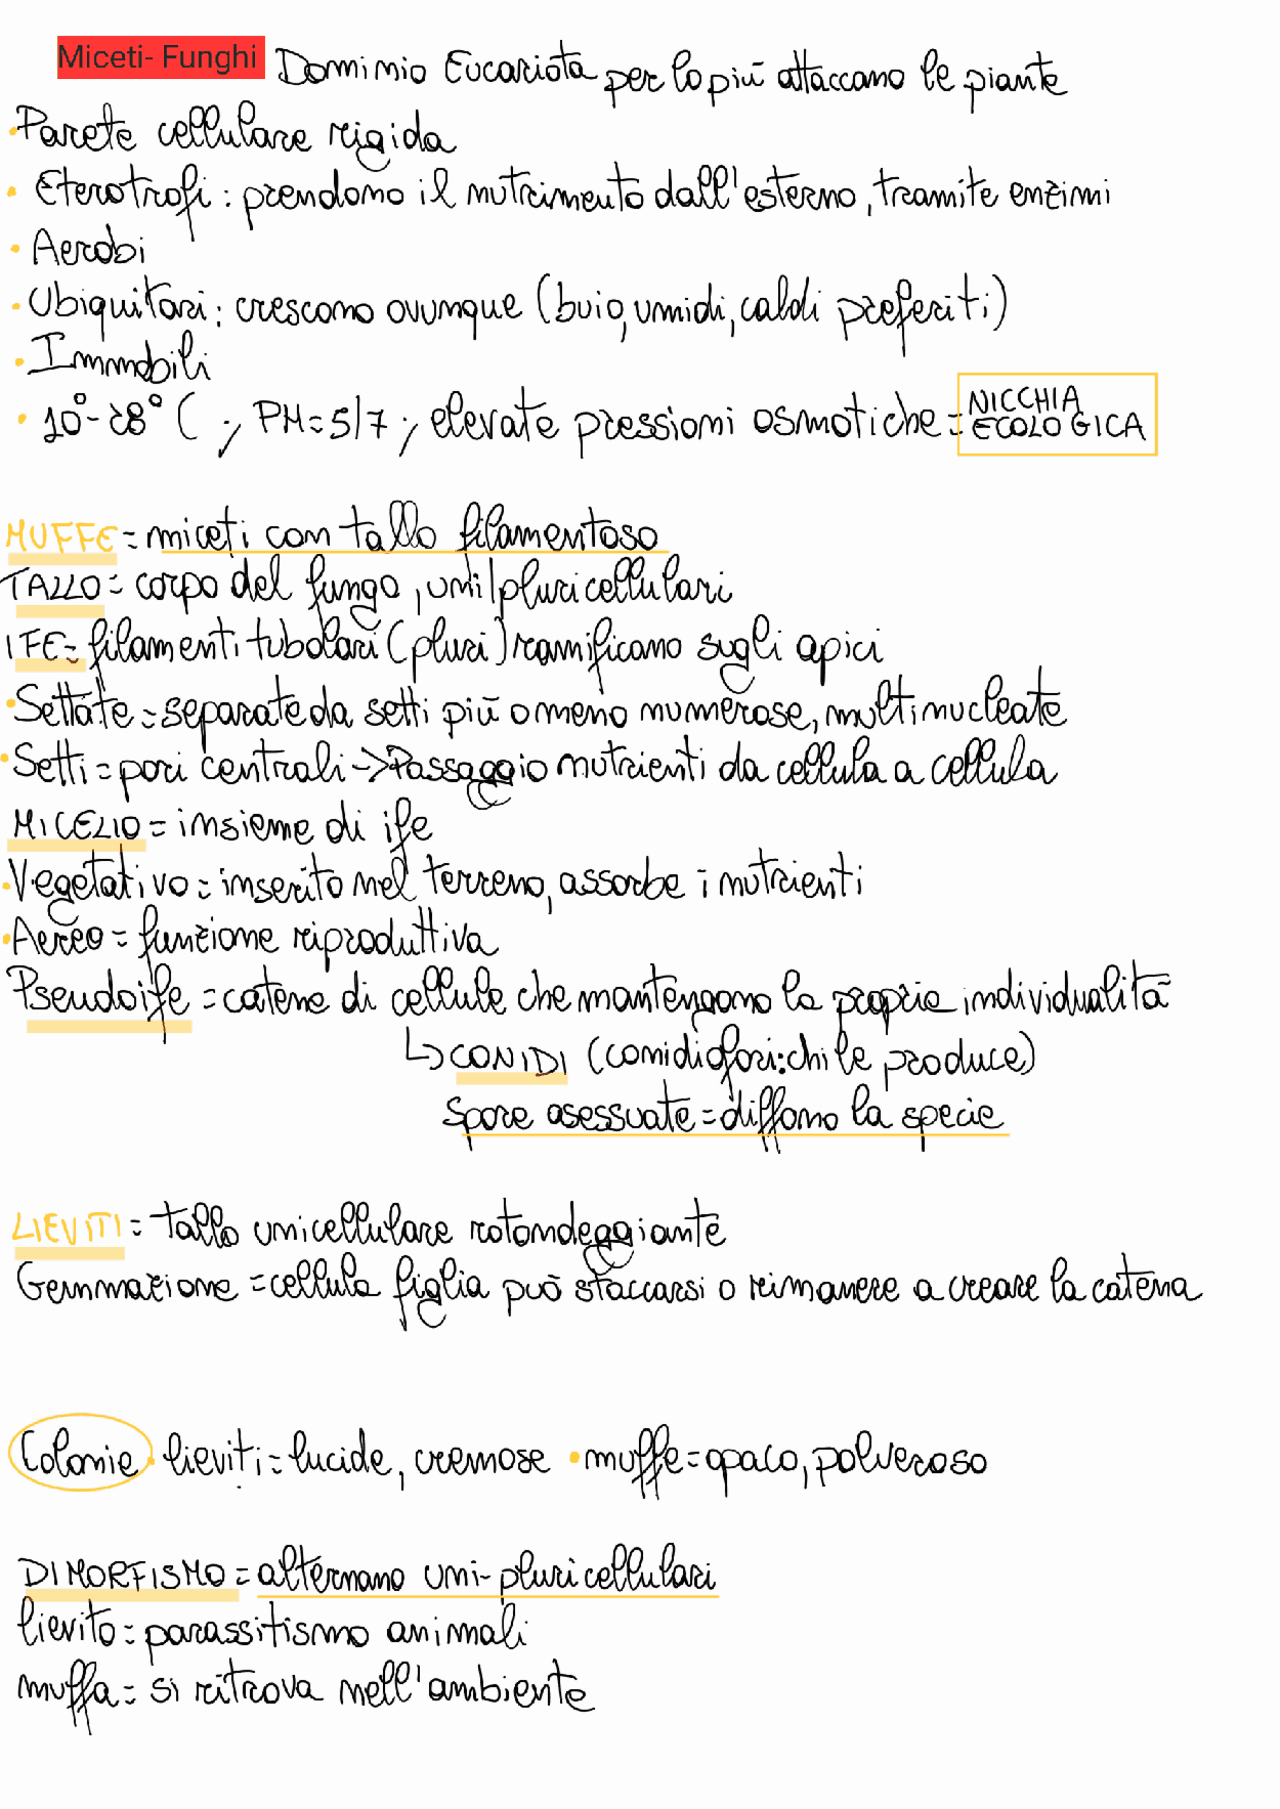 Miceti- Funghi Dominio Eucariota per lo più attaccano le piante
• Parete cellulare rigida
• Eterotrofi: prendono il nutrimento dall'esterno, tramite enzimi
• Aerobi
• Ubiquitari: crescono ovunque (buio, umidi, caldi preferiti)
• Immobili
• 10°-28° C ; PH=5/7 ; elevate pressioni osmotiche = NICCHIA ECOLOGICA
MUFFE = miceti con tallo filamentoso
TALLO = corpo del fungo, uni/pluricellulari
IFE = filamenti tubolari (pluri) ramificano sugli apici
• Settate = separate da setti più o meno numerose, multinucleate
• Setti = pori centrali -> Passaggio nutrienti da cellula a cellula
MICELIO = insieme di ife
• Vegetativo = inserito nel terreno, assorbe i nutrienti
• Aereo = funzione riproduttiva
Pseudoife = catene di cellule che mantengono la propria individualità
↳ CONIDI (conidiofori: chi le produce)
Spore asessuate = diffono la specie
LIEVITI = tallo unicellulare rotondeggiante
Gemmazione = cellula figlia può staccarsi o rimanere a creare la catena
Colonie • lieviti = lucide, cremose • muffe = opaco, polveroso
DIMORFISMO = alternano uni-pluricellulari
lievito = parassitismo animali
muffa = si ritrova nell'ambiente